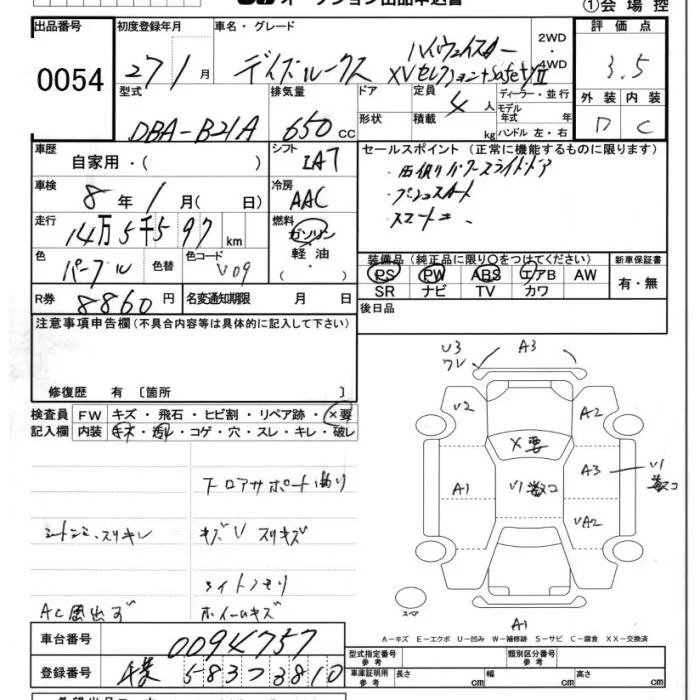 オークション出品申込書
①会場控
出品番号 0054
初度登録年月 27 1 月
車名・グレード デイズルークス ハイウェイスター XVセレクション+SafetyⅡ
2WD・4WD
評価点 3.5
型式 DBA-B21A
排気量 650 cc
ドア 形状
定員 4 人
積載 kg
ディーラー・並行
モデル年式 年
ハンドル 左・右
外装 内装
D C
車歴 自家用・( )
シフト IAT
セールスポイント (正常に機能するものに限ります)
・両側パワースライドドア
・プッシュスタート
・スマートキー
車検 8 年 1 月( 日)
冷房 AAC
走行 14万5千597 km
燃料 ガソリン・軽油・( )
色 パープル 色替 色コード V09
装備品(純正品に限り○をつけてください)
PS PW ABS エアB AW
SR ナビ TV カワ
新車保証書
有・無
R券 8860 円 名変通知期限 月 日
後日品
注意事項申告欄(不具合内容等は具体的に記入して下さい)
修復歴 有〔箇所 〕
検査員記入欄
FW キズ・飛石・ヒビ割・リペア跡・X要
内装 キズ・汚れ・コゲ・穴・スレ・キレ・破レ
フロアサポート曲り
シートシミ、スリキレ
キズU スリキズ
ライトクモリ
AC風出ず
ホイールキズ
U3 ワレ A3
U2 A2
X要
A1 U1数コ A3 U1数コ
UA2
スペア
A1
A-キズ E-エクボ U-凹み W-補修跡 S-サビ C-腐食 XX-交換済
車台番号 0094757
型式指定番号 参考
類別区分番号 参考
登録番号 583 つ 3810
車庫証明用参考 長さ cm 幅 cm 高さ cm